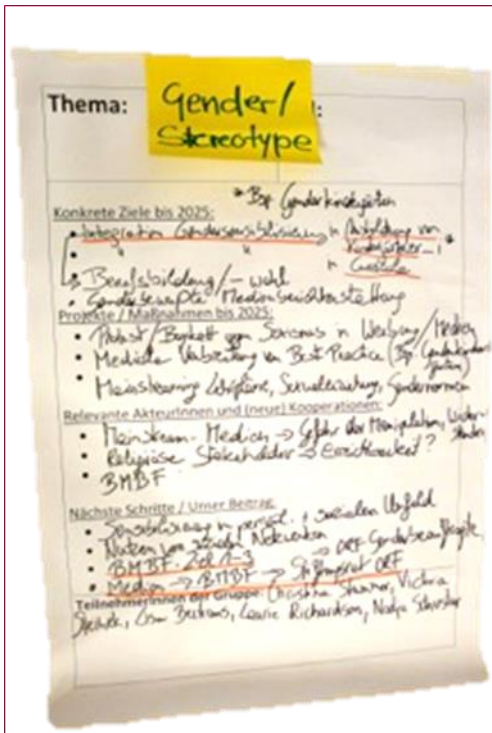 Thema:
Gender/
Stereotype
* Bsp. Genderkindergärten
Konkrete Ziele bis 2025:
• Integration Gendersensibilisierung in Ausbildung von
Kindergärtner_i *
in Curricula
• Berufsbildung/-wahl
• Medienberichterstattung
Projekte / Maßnahmen bis 2025:
• Protest/Boykott von Sexismus in Werbung/Medien
• Mediale Verbreitung von Best Practice (Bsp. Genderkinder-
gärten)
• Mainstreaming Sexualerziehung, Gendernormen
Relevante AkteurInnen und (neue) Kooperationen:
• Mainstream-Medien → Gefahr der Manipulation,
• Religiöse Stakeholder → Erreichbarkeit?
• BMBF
Nächste Schritte / Unser Beitrag:
• Sensibilisierung im persönl. + sozialen Umfeld
• Nutzen von Netzwerken
• BMBF - Ziel 1-3
→ ORF Genderbeauftragte
• Medien → BMBF → Stiftungsrat ORF
TeilnehmerInnen der Gruppe: Christina Victoria
Lisa Laurie Richardson, Nadja